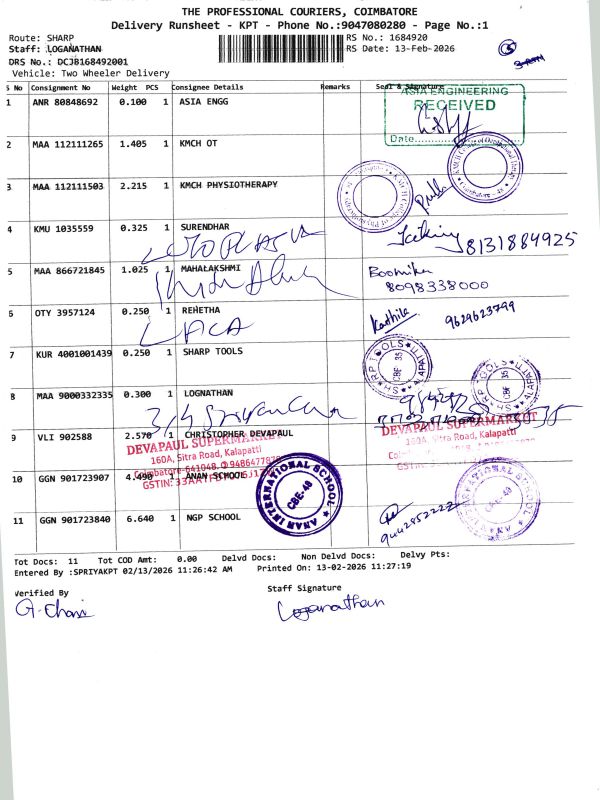 THE PROFESSIONAL COURIERS, COIMBATORE
Delivery Runsheet - KPT - Phone No.:9047080280 - Page No.:1
Route: SHARP
RS No.: 1684920
Staff: LOGANATHAN
RS Date: 13-Feb-2026
DRS No.: DCJ8168492001
Vehicle: Two Wheeler Delivery
S No Consignment No Weight PCS Consignee Details Remarks Seal & Signature
1 ANR 80848692 0.100 1 ASIA ENGG
ASIA ENGINEERING
RECEIVED
Date
2 MAA 112111265 1.405 1 KMCH OT
3 MAA 112111503 2.215 1 KMCH PHYSIOTHERAPY
4 KMU 1035559 0.325 1 SURENDHAR
8131884925
5 MAA 866721845 1.025 1 MAHALAKSHMI
Boomika
8098338000
6 OTY 3957124 0.250 1 REHETHA
Karthik 9629623799
7 KUR 4001001439 0.250 1 SHARP TOOLS
SHARP TOOLS KALAPATTI CBE 35
SHARP TOOLS KALAPATTI CBE 35
8 MAA 9000332335 0.300 1 LOGNATHAN
9 VLI 902588 2.570 1 CHRISTOPHER DEVAPAUL
DEVAPAUL SUPERMARKET
160A, Sitra Road, Kalapatti
Coimbatore-641048.
GSTIN:
DEVAPAUL SUPERMARKET
160A, Sitra Road, Kalapatti
GSTIN:
10 GGN 901723907 4.490 1 ANAN SCHOOL
ANAN INTERNATIONAL SCHOOL CBE-48
11 GGN 901723840 6.640 1 NGP SCHOOL
9442852222
Tot Docs: 11 Tot COD Amt: 0.00 Delvd Docs: Non Delvd Docs: Delvy Pts:
Entered By :SPRIYAKPT 02/13/2026 11:26:42 AM Printed On: 13-02-2026 11:27:19
Verified By
Staff Signature
Loganathan